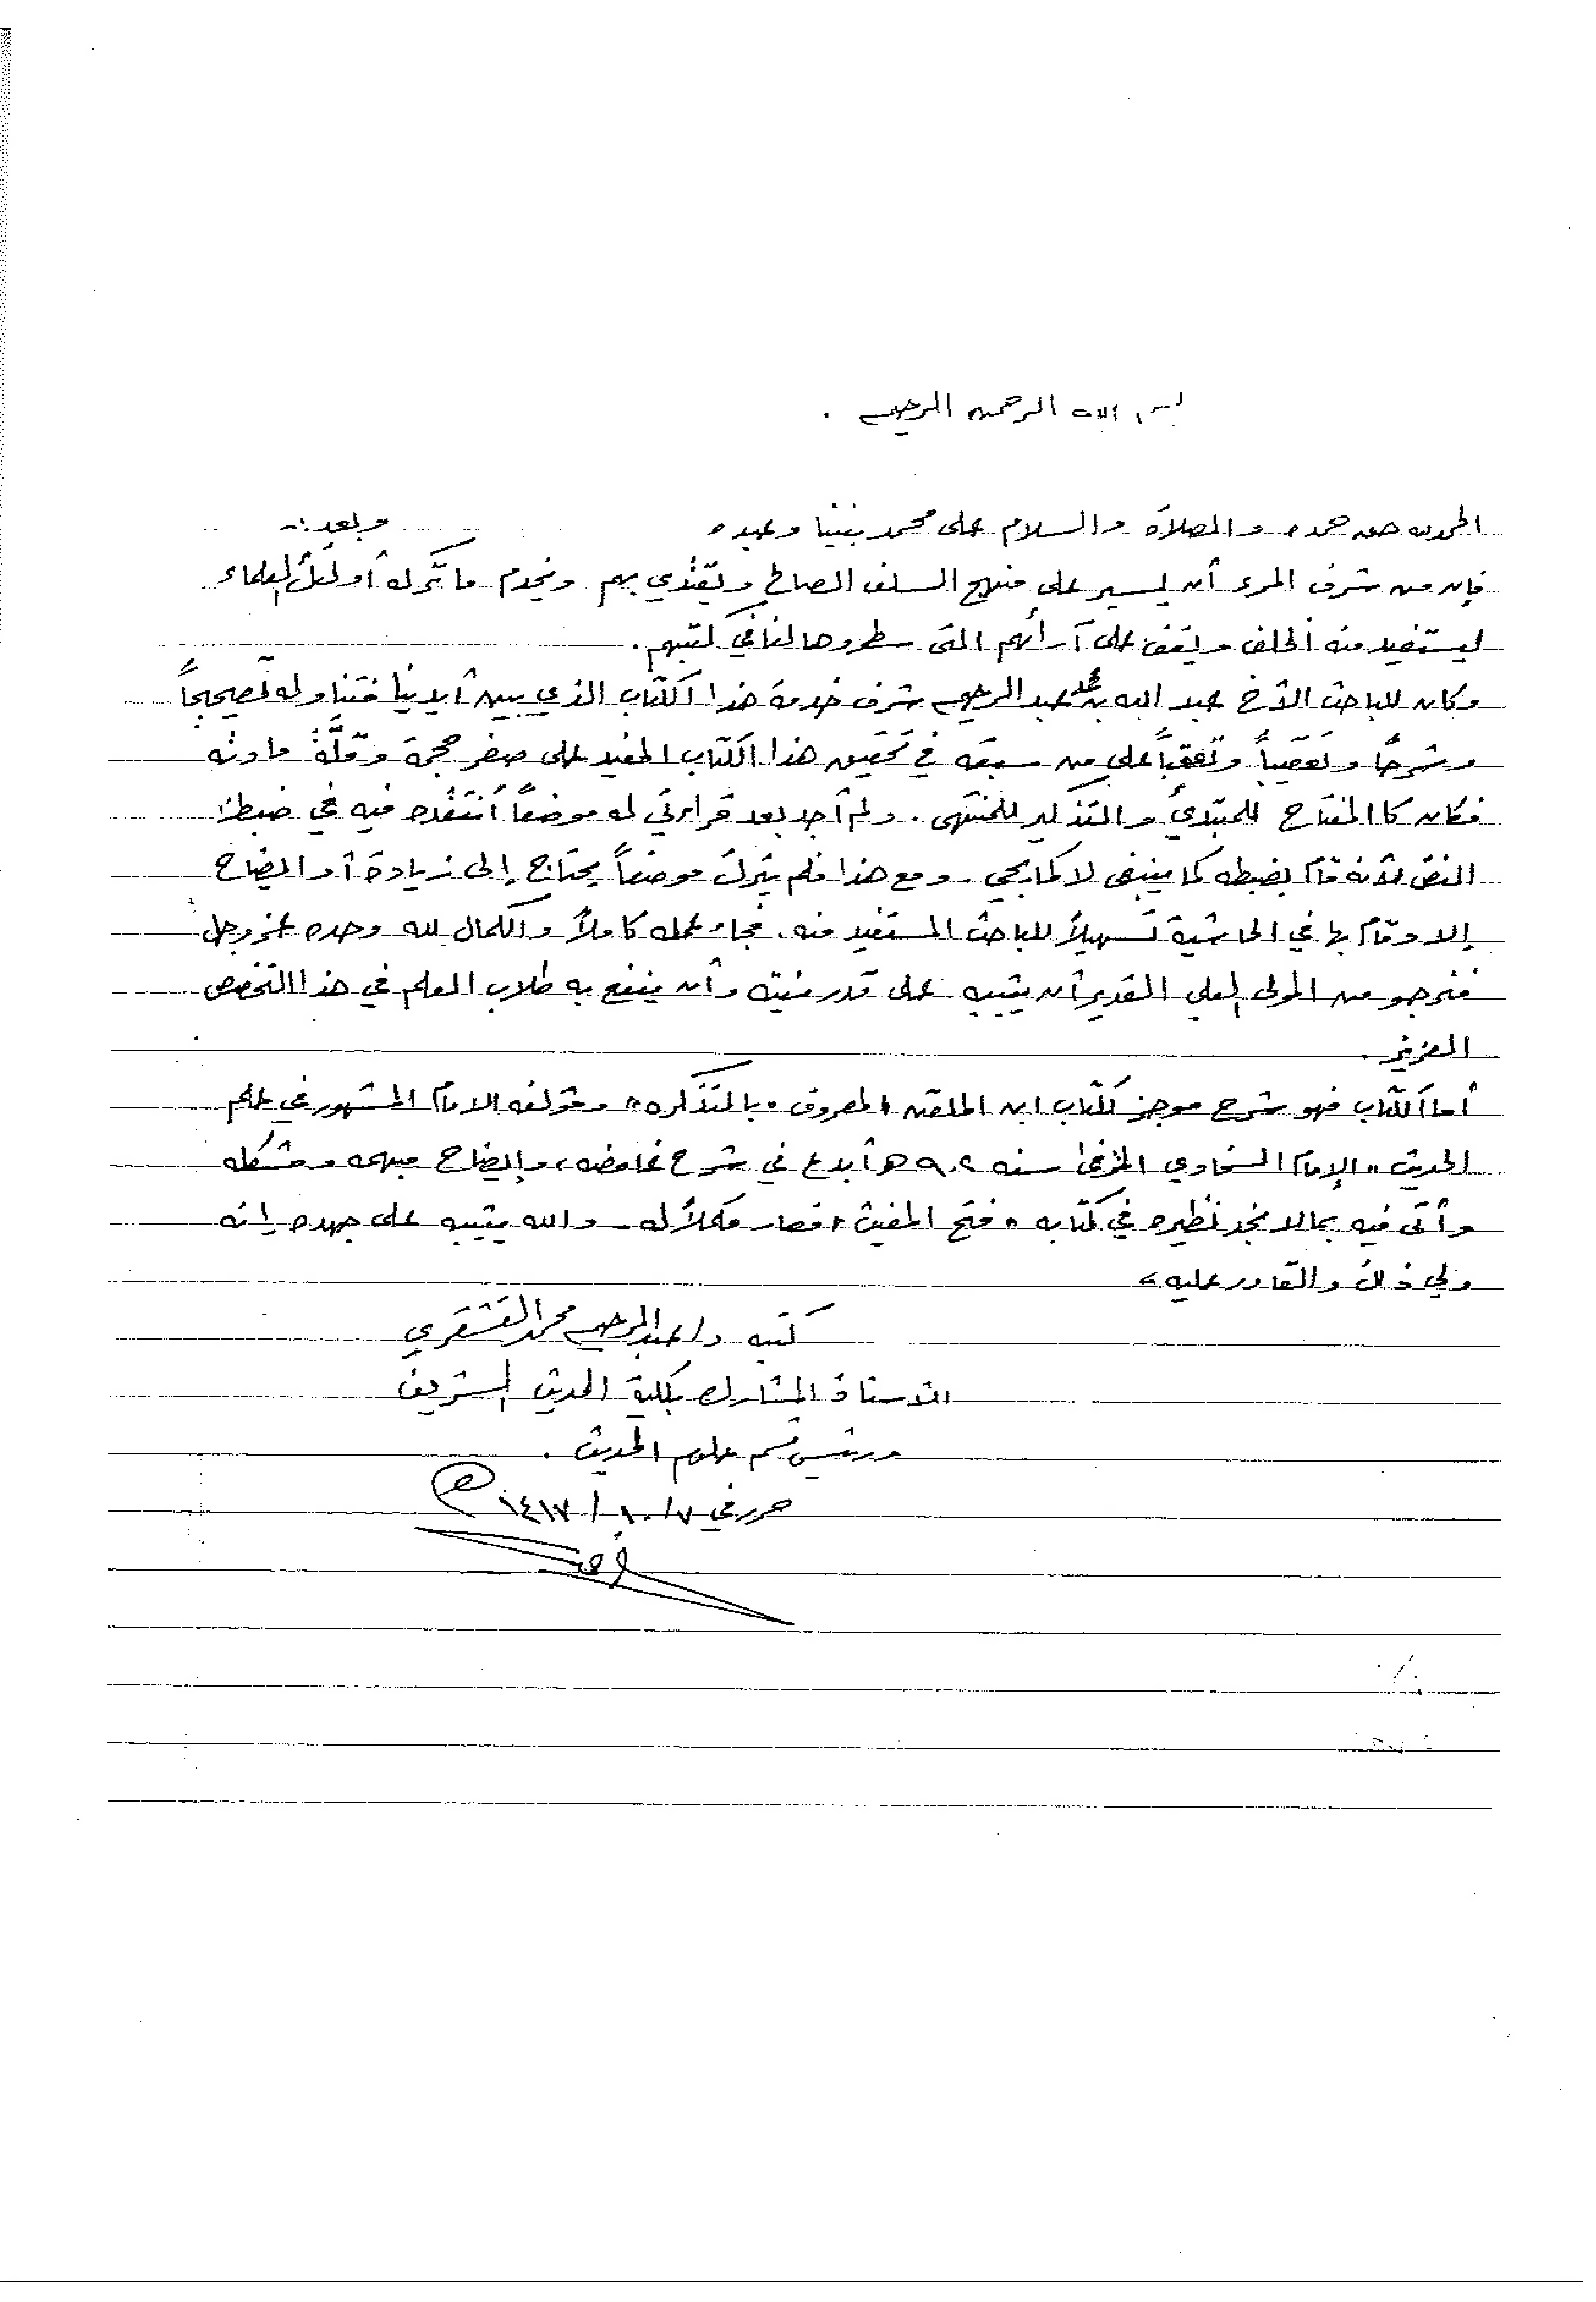 بسم الله الرحمن الرحيم .
الحمد لله حق حمده والصلاة والسلام على محمد نبينا وعبده وبعد :-
فإن من شرف المرء أن يسير على منهج السلف الصالح ويقتدي بهم ويخدم ما تركه أولئك العلماء
ليستفيد منه الخلف ويقف على آرائهم التي سطروها لنا في كتبهم .
وكان للباحث الأخ عبد الله بن محمد عبد الرحيم شرف خدمة هذا الكتاب الذي بين أيدينا فتناوله تصحيحاً
وشرحاً وتعقيباً وتعقباً على من سبقه في تحقيق هذا الكتاب المفيد على صغر حجمه وقلَّة مادته
فكان كالمفتاح للمبتدئ والتذكير للمنتهى . ولم أجد بعد قراءتي له موضعاً أنتقده فيه في ضبط
النص لأنه قام بضبطه كما ينبغي لا كما يجي . ومع هذا فلم يترك موضعاً يحتاج إلى زيادة أو إيضاح
إلا وقام بها في الحاشية تسهيلاً للباحث المستفيد منه . فجاء عمله كاملاً والكمال لله وحده عز وجل
فنرجو من المولى العلي القدير أن يثيبه على قدر نيته وأن ينفع به طلاب العلم في هذا التخصص
العزيز .
أما الكتاب فهو شرح موجز لكتاب ابن الملقن المعروف « بالتذكره » ومؤلفه الامام المشهور في علم
الحديث « الإمام السخاوي المتوفى سنه ٩٠٢ هـ أبدع في شرح غامضه ، وإيضاح مبهمه ومشكله
وأتى فيه بمالا نجد نظيره في كتابه « فتح المغيث » فصار مكملاً له . والله يثيبه على جهده إنه
ولي ذلك والقادر عليه ،
كتبه د/ عبد الرحيم محمد القشقري
الأستاذ المشارك بكلية الحديث الشريف
ورئيس قسم علوم الحديث .
حرر في ٧ / ١٠ / ١٤١٧ هـ